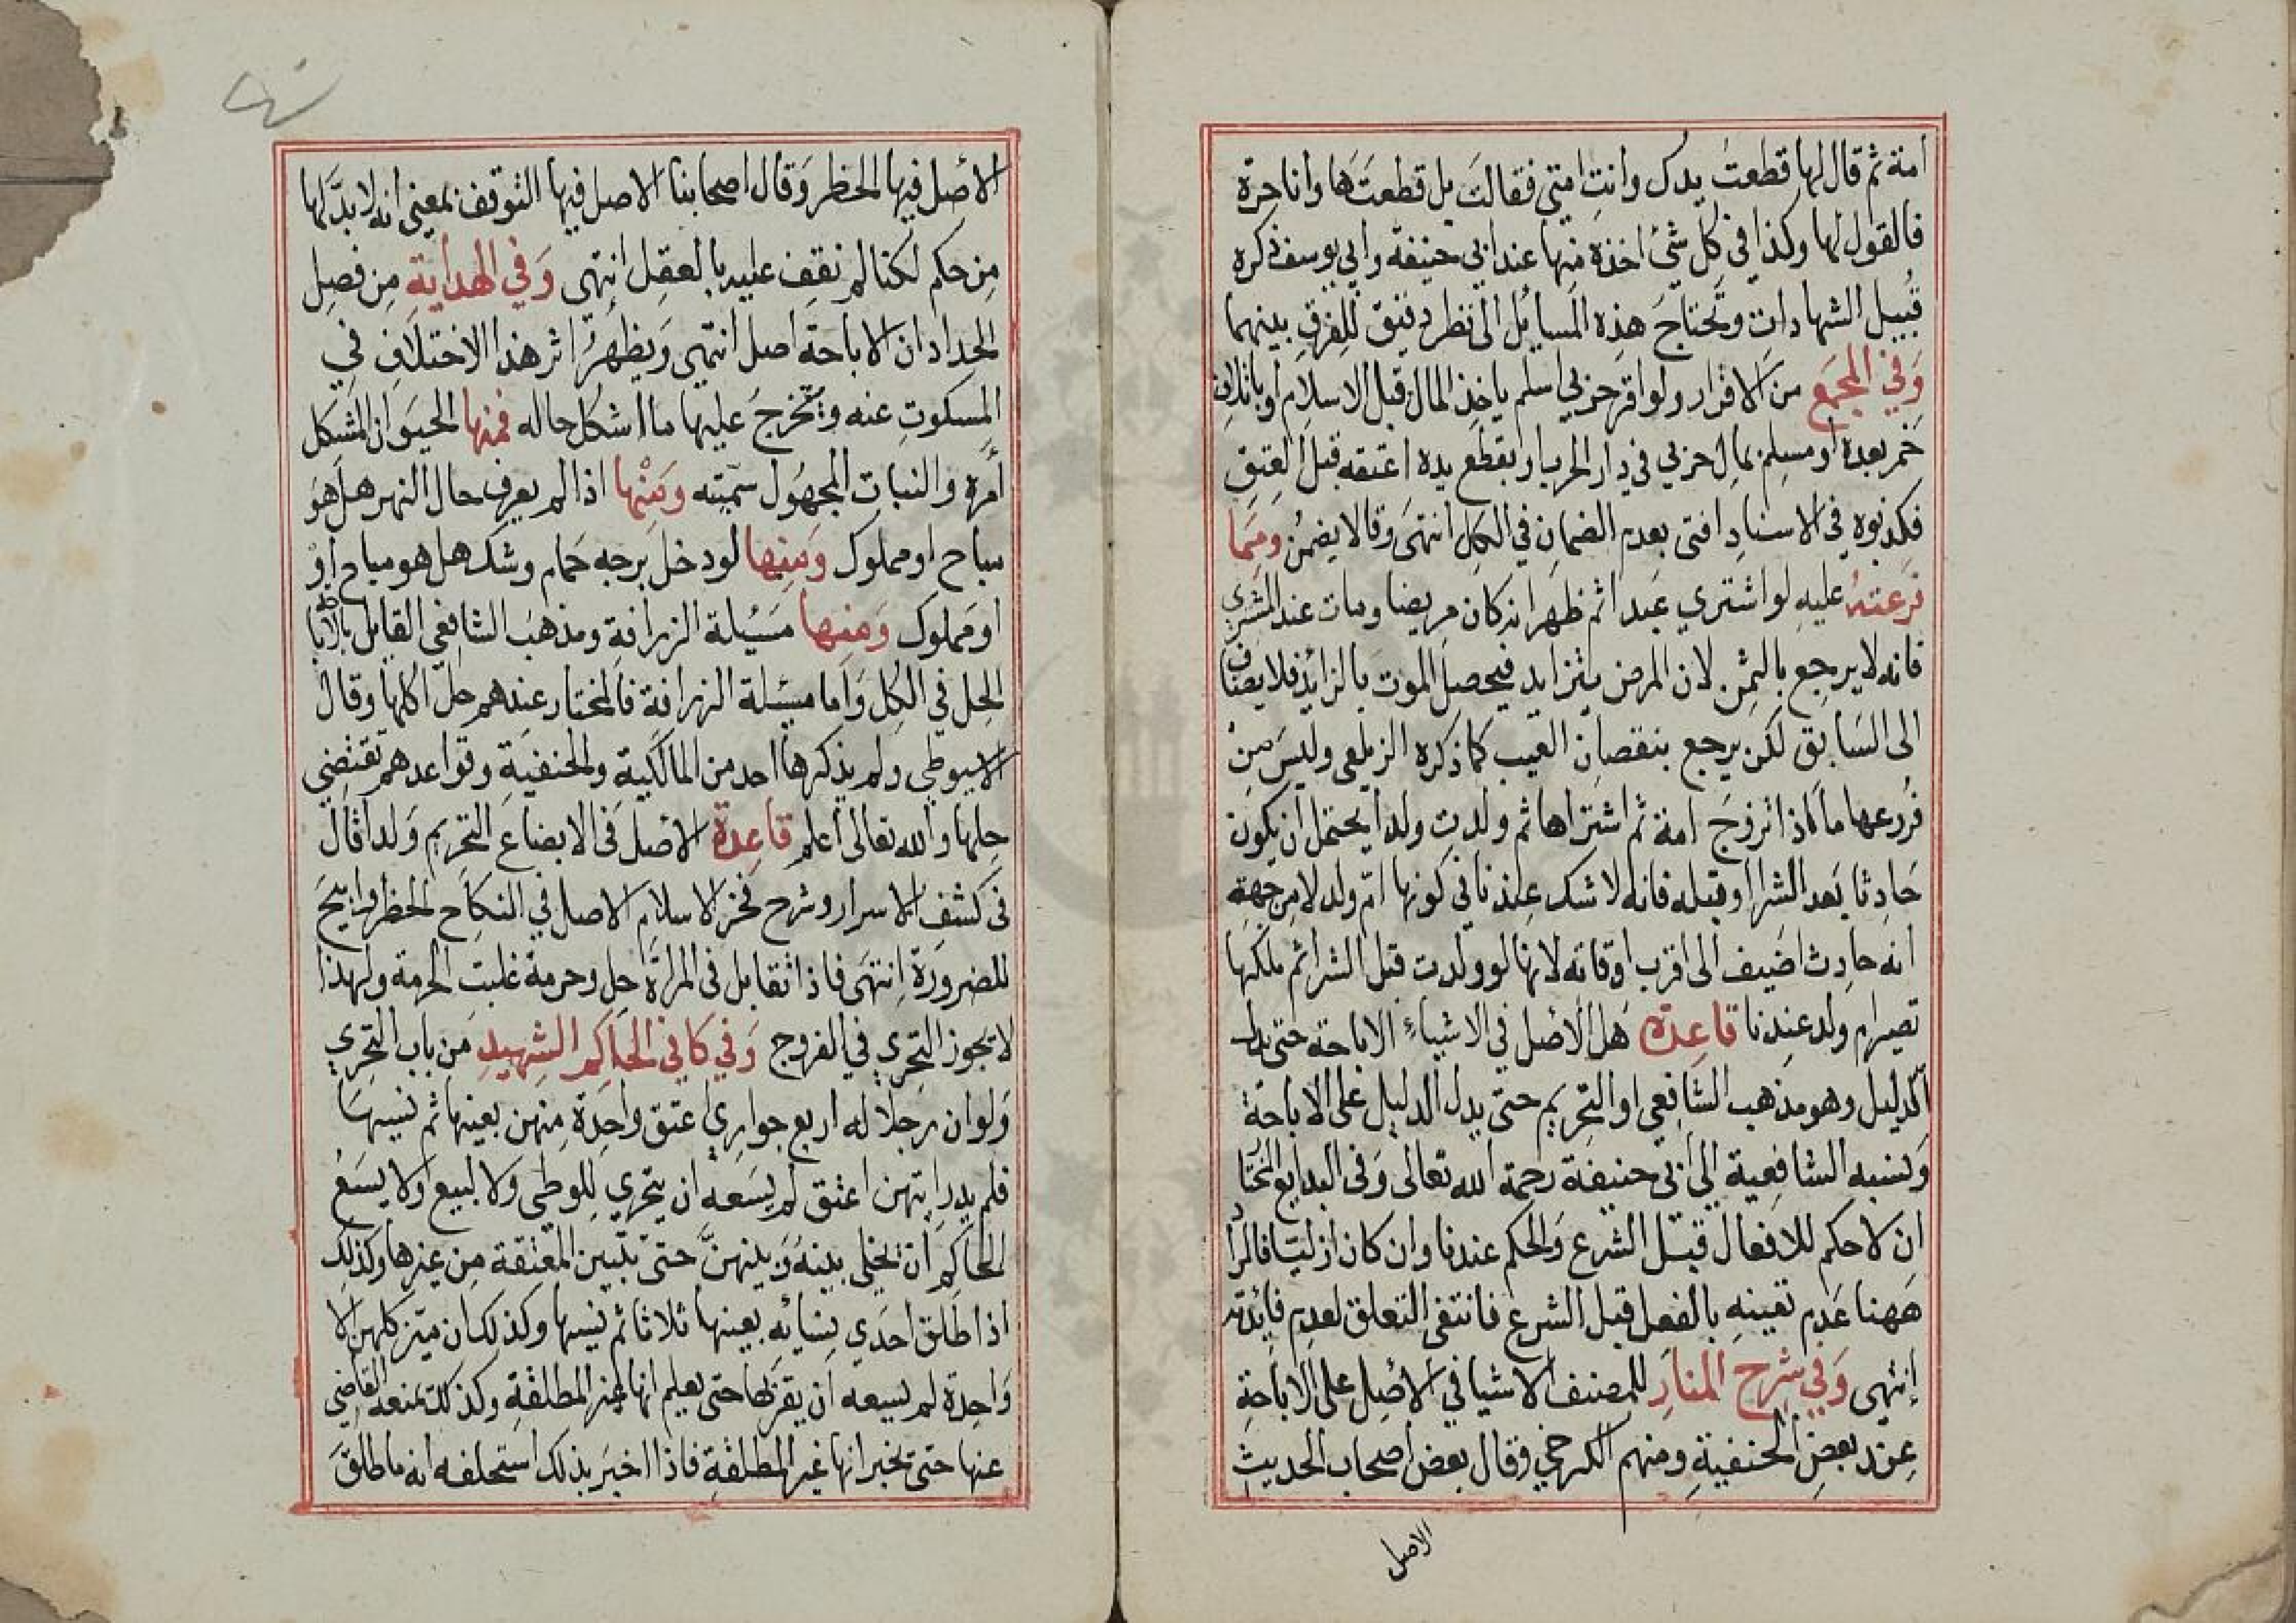 امة ثم قال لها قطعت يدك وانت امتي فقالت بل قطعتها وانا حرة
فالقول لها وكذا في كل شئ اخذه منها عند ابي حنيفة وابي يوسف ذكره
قبيل الشهادات وتحتاج هذه المسائل الى نظر دقيق للفرق بينهما
وفي المجمع من الاقرار ولو اقر حربي اسلم ياخذ المال قبل الاسلام او باتلاف
خمر بعده او مسلم بمال حربي في دار الحرب او بقطع يده اعتقه قبل العتق
فكذبوه في الاسناد افتى بعدم الضمان في الكل انتهى وقالا يضمن ومما
فرعته عليه لو اشتري عبدا ثم ظهر انه كان مريضا ومات عند المشري
فانه لا يرجع بالثمن لان المرض يتزايد فيحصل الموت بالزائد فلا يضاف
الى السابق لكن يرجع بنقصان العيب كما ذكره الزيلعي وليس من
فروعها ما اذا تزوج امة ثم اشتراها ثم ولدت ولدا يحتمل ان يكون
حادثا بعد الشرا او قبله فانه لا شك عندنا في كونها ام ولد لا من جهة
انه حادث اضيف الى اقرب اوقاته لانها لو ولدت قبل الشرا ثم ملكها
تصير ام ولد عندنا قاعدة هل الاصل في الاشياء الاباحة حتى يدل
الدليل وهو مذهب الشافعي او التحريم حتى يدل الدليل على الاباحة
ونسبه الشافعية الى ابي حنيفة رحمة الله تعالى وفي البدايع المختار
ان لا حكم للافعال قبل الشرع والحكم عندنا وان كان ازليا فالمراد
ههنا عدم تعينه بالفعل قبل الشرع فانتفى التعلق لعدم فائدته
انتهى وفي شرح المنار للمصنف الاشيا في الاصل على الاباحة
عند بعض الحنفية ومنهم الكرخي وقال بعض اصحاب الحديث
الاصل
الاصل فيها الحظر وقال اصحابنا الاصل فيها التوقف بمعني انه لا بد لها
من حكم لكنا لم نقف عليه بالعقل انتهى وفي الهداية من فصل
الحداد ان الاباحة اصل انتهى ويظهر اثر هذا الاختلاف في
المسكوت عنه وتتخرج عليها ما اشكل حاله فمنها الحيوان المشكل
امره والنبات المجهول سميته ومنها اذا لم يعرف حال النهر هل هو
مباح او مملوك ومنها لو دخل برجه حمام وشك هل هو مباح او
او مملوك ومنها مسئلة الزرافة ومذهب الشافعي القايل بالابا
الحل في الكل واما مسئلة الزرافة فالمختار عندهم حل اكلها وقال
الاسيوطي ولم يذكرها احد من المالكية والحنفية وقواعدهم تقتضي
حلها والله تعالى اعلم قاعدة الاصل في الابضاع التحريم ولذا قال
في كشف الاسرار وشرح فخر الاسلام الاصل في النكاح الحظر وابيح
للضرورة انتهى فاذا تقابل في المراة حل وحرمة غلبت الحرمة ولهذا
لا يجوز التحري في الفروج وفي كافي الحاكم الشهيد من باب التحري
ولو ان رجلا له اربع جواري اعتق واحدة منهن بعينها ثم نسيها
فلم يدر ايتهن اعتق لم يسعه ان يتحري للوطي ولا لبيع ولا يسع
الحاكم ان يخلي بينه وبينهن حتى تتبين المعتقة من غيرها وكذلك
اذا طلق احدي نسائه بعينها ثلاثا ثم نسيها وكذلك ان ميز كلهن الا
واحدة لم يسعه ان يقربها حتى يعلم انها غير المطلقة وكذلك يمنعه القاضي
عنها حتى يخبر انها غير المطلقة فاذا اخبر بذلك استحلفه انه ما طلق